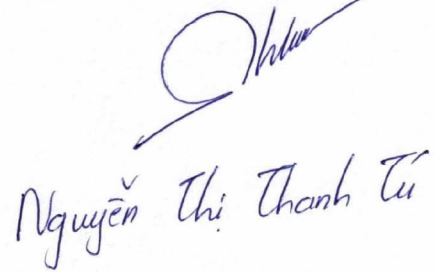 Nguyễn Thị Thanh Tú